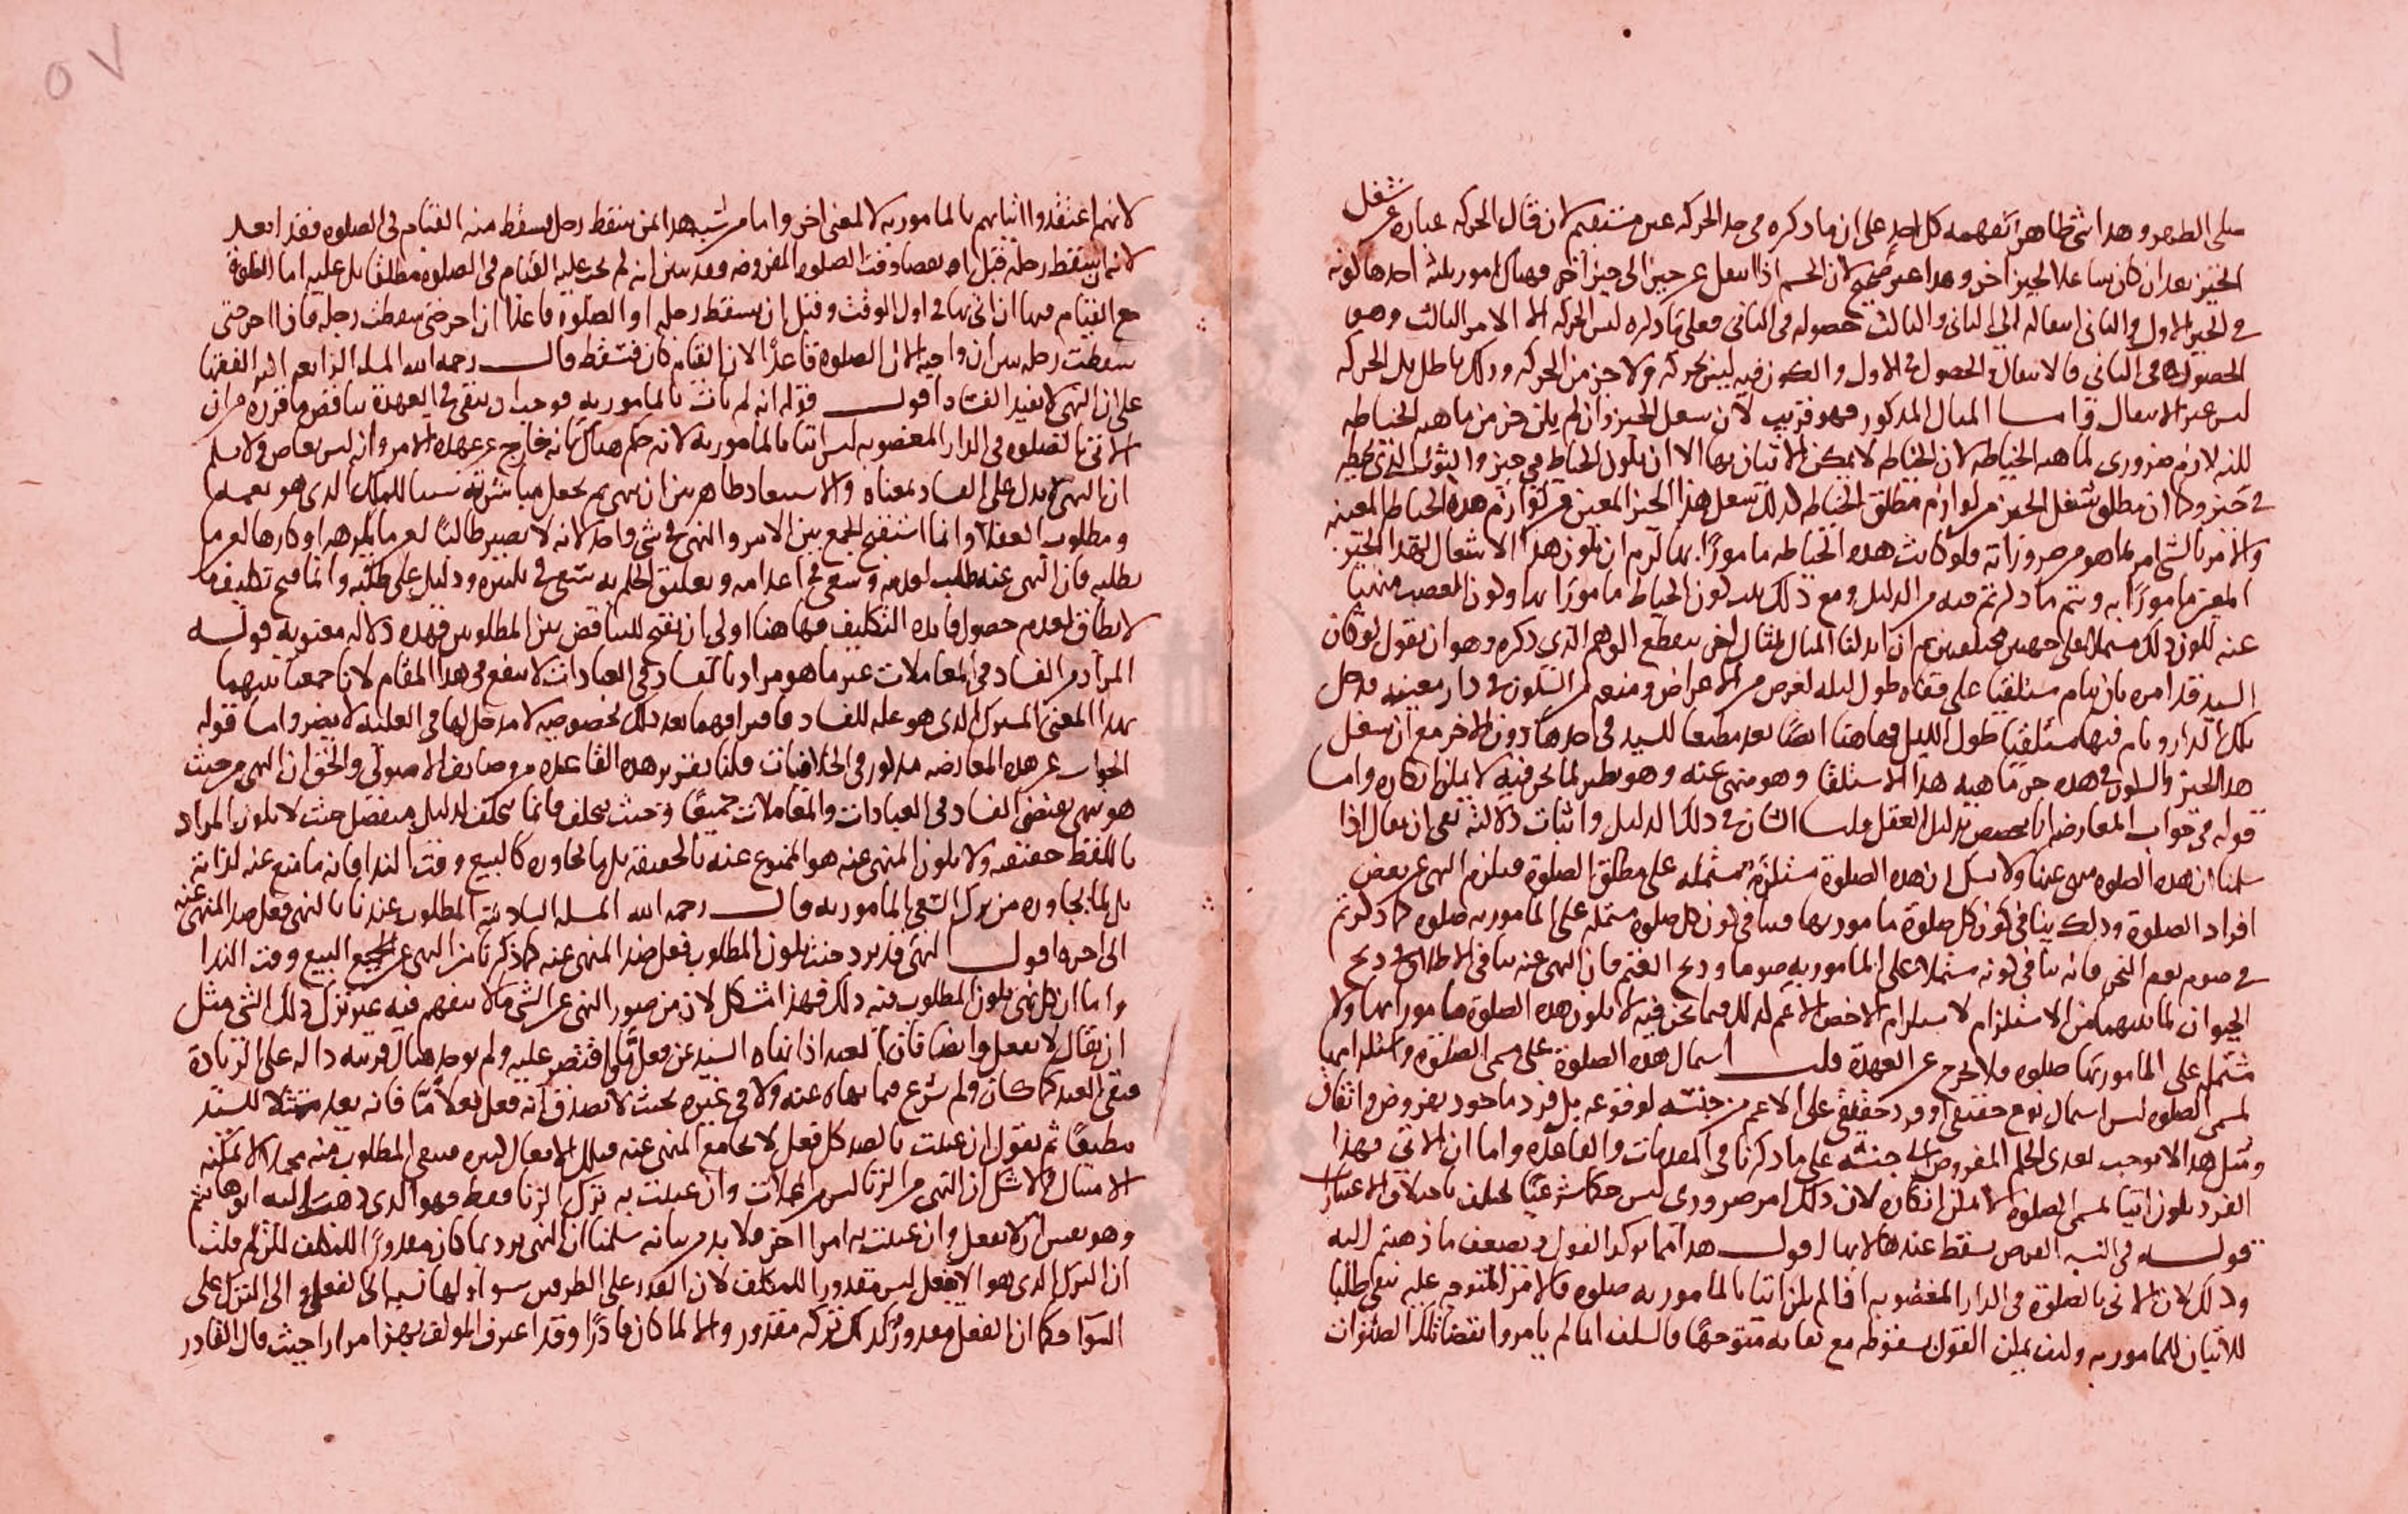 على الظهر وهذا شي ظاهر يفهمه كل احد على ان ما ذكره في حد الحركه غير مستقيم لانه قال الحركه عباره عن شغل
الحيز بعد ان كان شاغلا لحيز اخر وهذا غير صحيح لان الجسم اذا انتقل عن حيز الى حيز اخر فهناك امور ثلثة احدها كونه
في الحيز الاول والثاني انتقاله الى الثاني والثالث حصوله في الثاني فعلى ما ذكره ليس الحركه الا الامر الثالث وهو
الحصول في الثاني فالانتقال الحصول في الاول والكون فيه ليس بحركه ولا جز من الحركه وذلك باطل بل الحركه
ليس غير الانتقال واما المثال المذكور فهو قريب لان شغل الحيز وان لم يكن جز من ماهيه الخياطه
لكنه لازم ضروري لماهيه الخياطه لان الخياطه لا يمكن الاتيان بها الا ان يكون الخياط في حيز والثوب الذي يخيطه
في حيز وكما ان مطلق شغل الحيز من لوازم مطلق الخياطه كذلك شغل هذا الحيز المعين من لوازم هذه الخياطه المعينه
والامر بالشي امر بما هو من ضروراته فلو كانت هذه الخياطه مامورا بها لزم ان يكون هذا الاشغال لهذا الحيز
المعين مامورا به ويتم ما ذكرتم فيه من الدليل ومع ذلك كون الخياطه مامورا بها وكون الغصب منهيا
عنه لكون ذلك مشتملا على جهتين مختلفتين ثم ان ابدلنا المثال بمثال اخر ينقطع الوهم الذي ذكره وهو ان نقول لو كان
السيد قد امره بان ينام مستلقيا على قفاه طول ليله لغرض من الاغراض ومنعه من السكون في دار معينه فدخل
تلك الدار ونام فيها مستلقيا طول الليل فهاهنا ايضا يعد مطيعا للسيد في احدهما دون الاخر مع ان شغل
هذا الحيز والسكون في هذه جز ماهيه هذا الاستلقا وهو منهي عنه وهو نظير لما نحن فيه لا يمكن انكاره واما
قوله في جواب المعارضه بالتخصيص بدليل العقل قلنا الشان في ذلك الدليل واثبات دلالته بقي ان يقال اذا
سلمنا ان هذه الصلوه منهي عنها ولا شك ان هذه الصلوة مستلزمة مشتمله على مطلق الصلوة فيلزم النهي عن بعض
افراد الصلوة وذلك ينافي كون كل صلوة مامور بها فينافي كون كل صلوه مشتمله على المامور به صلوه كما ذكرتم
في صوم يوم النحر فانه ينافي كونه مشتملا على المامور به صوما وذبح الغنم فان النهي عنه ينافي الاطلاق في ذبح
الحيوان لما بينهما من الاستلزام لاستلزام الاخص الاعم كذلك فيما نحن فيه لا يكون هذه الصلوة مامورا بها ولا
مشتمله على المامور بها صلوه فلا يخرج عن العهدة قلنا اشتمال هذه الصلوة على مسمى الصلوة واستلزامها
لمسمى الصلوه ليس اشتمال نوع حقيقي او فرد حقيقي على الاعم من جنسه لوقوعه بل فرد ماخوذ بفروض واتفاق
ومثل هذا لا يوجب تعدى الحكم المفروض الى جنسه على ما ذكرنا في المقدمات والقاعده واما ان الاتي بهذا
الفرد يكون اتيا بمسمى الصلوة لا يمكن انكاره لان ذلك امر ضروري ليس حكما شرعيا يختلف باختلاف الاعتبارات
قوله في التنبيه الفرض يسقط عندها لا بها اقول هذا مما يوكد القول ويضعف ما ذهبتم اليه
وذلك لان الاتي بالصلوة في الدار المغصوبه اذا لم يكن اتيا بالمامور به صلوه فالامر المتوجه عليه بقي طلبا
للاتيان بالمامور به وكيف يمكن القول بسقوطه مع بقايه متوجها فالسلف انما لم يامروا بقضا تلك الصلوات
لانهم اعتقدوا اتيانهم بالمامور به لا لمعنى اخر واما من شبه هذا بمن سقط رجله يسقط منه القيام في الصلوه فقد ابعد
لانه ان سقط رجله قبل او بعضا وقت الصلوه المفروضه فقد تبين انه لم يجب عليه القيام في الصلوه مطلقا بل عليه اما الصلوة
مع القيام فيها ان اتى بها في اول الوقت وقبل ان يسقط رجله او الصلوه قاعدا ان اخر حتى سقطت رجله فاذا اخر حتى
سقطت رجله تبين ان واجبه الان الصلوه قاعدا لا ان القيام كان فسقط قال رحمه الله المسله الرابعه اكثر الفقها
على ان النهي لا يفيد الفساد اقول قوله انه لم يات بالمامور به فوجب ان يبقى في العهدة يناقض ما قرره من ان
الاتي بالصلوه في الدار المغصوبه ليس اتيا بالمامور به لانه حكم هناك بانه خارج عن عهده الامر وانه ليس بعاص ولا نسلم
ان النهي لا يدل على الفساد بمعناه والاستبعاد ظاهر من ان نهي ثم يجعل مباشرته سببا للملك الذي هو نعمه
ومطلوب العقلا وانما استقبح الجمع بين الامر والنهي في شي واحد لانه لا يصير طالبا لعدم ما يكرهه او كارها لعدم ما
يطلبه فان النهي عنه طلب لعدمه وسعي في اعدامه وتعليق الحكم به سعي في تكثيره ودليل على طلبه وانما قبح تكليف ما
لا يطاق لعدم حصول فائدة التكليف فهاهنا اولى ان يقبح للتناقض بين المطلوبين فهذه دلاله معنويه قوله
المراد من الفساد في المعاملات غير ما هو مراد بالفساد في العبادات لا ينفع في هذا المقام لانا جمعنا بينهما
بهذا المعنى المشترك الذي هو عله للفساد فافتراقهما بعد ذلك بخصوصيه لا مدخل لها في العليه لا يضر واما قوله
الجواب عن هذه المعارضه مذكور في الخلافيات قلنا تقرير هذه القاعده من وصايف الاصولي والحق ان النهي من حيث
هو نهي يقتضي الفساد في العبادات والمعاملات جميعا وحيث يتخلف فانما يتخلف لدليل منفصل حيث لا يكون المراد
باللفظ حقيقته ولا يكون المنهي عنه هو الممنوع عنه بالحقيقة بل ما يجاوره كالبيع وقت الندا فانه ما منع عنه لذاته
بل لما يجاوره من ترك السعي المامور به قال رحمه الله المسله السادسة المطلوب عندنا بالنهي فعل ضد المنهي عنه
الى اخره اقول النهي قد يرد حيث يكون المطلوب فعل ضد المنهي عنه كما ذكرنا من النهي عن البيع وقت الندا
واما ان كل نهي يكون المطلوب منه ذلك فهذا مشكل لان من صور النهي عن الشي ما لا يفهم فيه غير ترك ذلك الشي مثل
ان يقال لا تفعل وايضا فان العبد اذا نهاه السيد عن فعل شي اقتصر عليه ولم يوجد هناك قرينه داله على الزيادة
فبقي العبد كما كان ولم يشرع فيما نهاه عنه ولا في غيره بحيث لا يصدق انه فعل فعلا ما فانه يعد ممتثلا للسيد
مطيعا ثم نقول ان عنيت بالضد كل فعل لا يجامع المنهي عنه فتلك الافعال كثيره فيبقى المطلوب منه مجملا لا يمكنه
الامتثال ولا شك ان النهي عن الزنا ليس من المجملات وان عنيت به ترك الزنا فقط فهو الذي ذهب اليه ابو هاشم
وهو نفس ان لا يفعل وان عنيت به امرا اخر فلا بد من بيانه سلمنا ان النهي يرد بما كان مقدورا للمكلف لكن لم قلت
ان الترك الذي هو الا يفعل ليس مقدورا للمكلف لان القدره على الطرفين سوا اولها نسبه الى الفعل والى الترك على
السوا فكما ان الفعل مقدور كذلك تركه مقدور والا لما كان قادرا وقد اعترف المولف بهذا مرارا حيث قال القادر